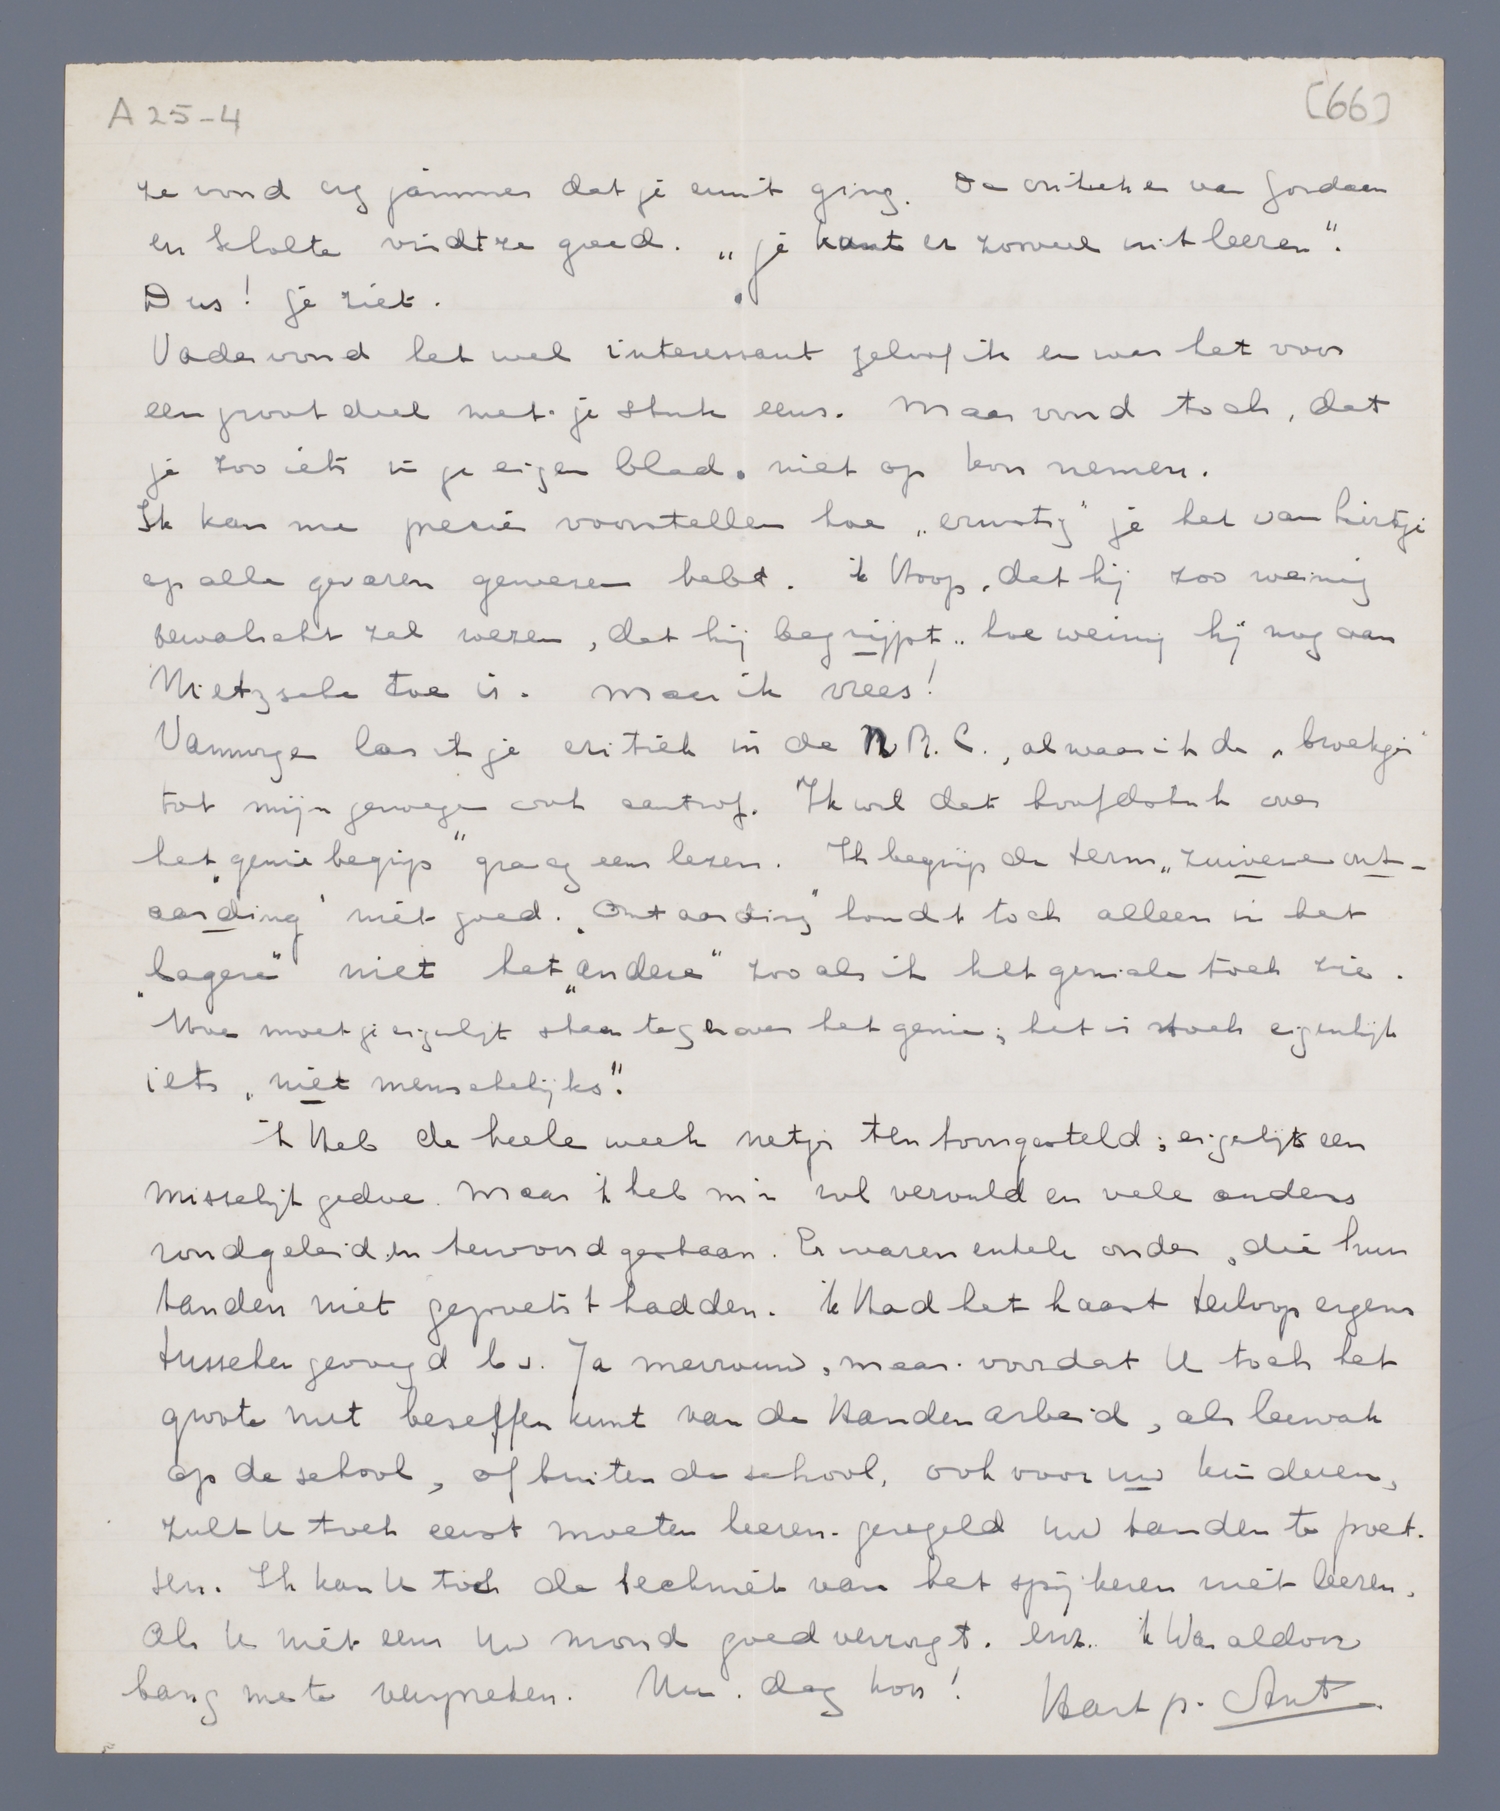 A 25-4
(66)
ze vond erg jammer dat je eruit ging. De critieken van Jordaan
en Scholte vindt ze goed. „je kunt er zooveel uit leeren".
Dus! je ziet.
Vader vond het wel interessant geloof ik en was het voor
een groot deel met je stuk eens. Maar vond toch, dat
je zoo iets in je eigen blad niet op kon nemen.
Ik kan me precies voorstellen hoe „ernstig" je het van
op alle gevaren gewezen hebt. ik Hoop, dat hij zoo weinig
zal wezen, dat hij begrijpt.. hoe weinig hij nog aan
Nietzsche toe is. Maar ik vrees!
Vanmorgen las ik je critiek in de N.R.C., alwaar ik de „broekjes"
tot mijn genoegen ook aantrof. Ik wil dat hoofdstuk over
het „geniebegrip" graag eens lezen. Ik begrijp de term „zuivere ont-
aarding" niet goed. „Ontaarding" houdt toch alleen in het
„lagere" niet het „andere" zooals ik het geniale toch zie.
Hoe moet je eigenlijk staan tegenover het genie; het is toch eigenlijk
iets „niet menschelijks".
ik Heb de heele week netjes tentoongesteld; eigenlijk een
misselijk gedoe. Maar ik heb m'n rol vervuld en vele ouders
rondgeleid en te woord gestaan. Er waren enkele onder, die hun
tanden niet gepoetst hadden. ik Had het haast terloops ergens
tusschen gevoegd b.v. Ja mevrouw, maar voordat U toch het
groote nut beseffen kunt van de Handenarbeid, als leervak
op de school, of buiten de school, ook voor uw kinderen,
zult U toch eerst moeten leeren geregeld uw tanden te poet-
sen. Ik kan U toch de techniek van het spijkeren niet leeren,
Als U niet eens Uw mond goed verzorgt. enz.. ik Was aldoor
bang me te verspreken. Nu. dag hoor! Hart p. Ant.